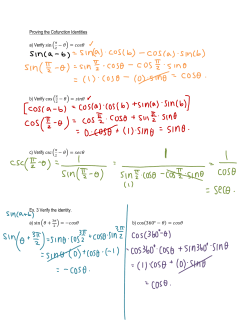 Proving the Cofunction Identities
a) Verify sin(π/2 − θ) = cosθ ✓
sin(a-b) = sin(a)·cos(b) − cos(a)·sin(b)
sin(π/2 - θ) = sin π/2 · cosθ − cos π/2 · sinθ
= (1)·cosθ − (0)·sinθ = cosθ.
b) Verify cos(π/2 − θ) = sinθ ✓
[cos(a-b) = cos(a)·cos(b) + sin(a)·sin(b)]
cos(π/2 - θ) = cos π/2 · cosθ + sin π/2 · sinθ
= 0·cosθ + (1)·sinθ = sinθ.
c) Verify csc(π/2 − θ) = secθ
csc(π/2 - θ) = 1/sin(π/2 - θ) = 1/(sin π/2 · cosθ − cos π/2 · sinθ) = 1/cosθ
(1)
= secθ.
Ex. 3 Verify the identity.
sin(a+b)
a) sin(θ + 3π/2) = −cosθ
sin(θ + 3π/2) = sinθ·cos 3π/2 + cosθ·sin 3π/2
= sinθ·(0) + cosθ·(-1)
= -cosθ.
b) cos(360° − θ) = cosθ
cos(360°-θ)
cos360°·cosθ + sin360°·sinθ
= (1)·cosθ + (0)·sinθ
= cosθ.